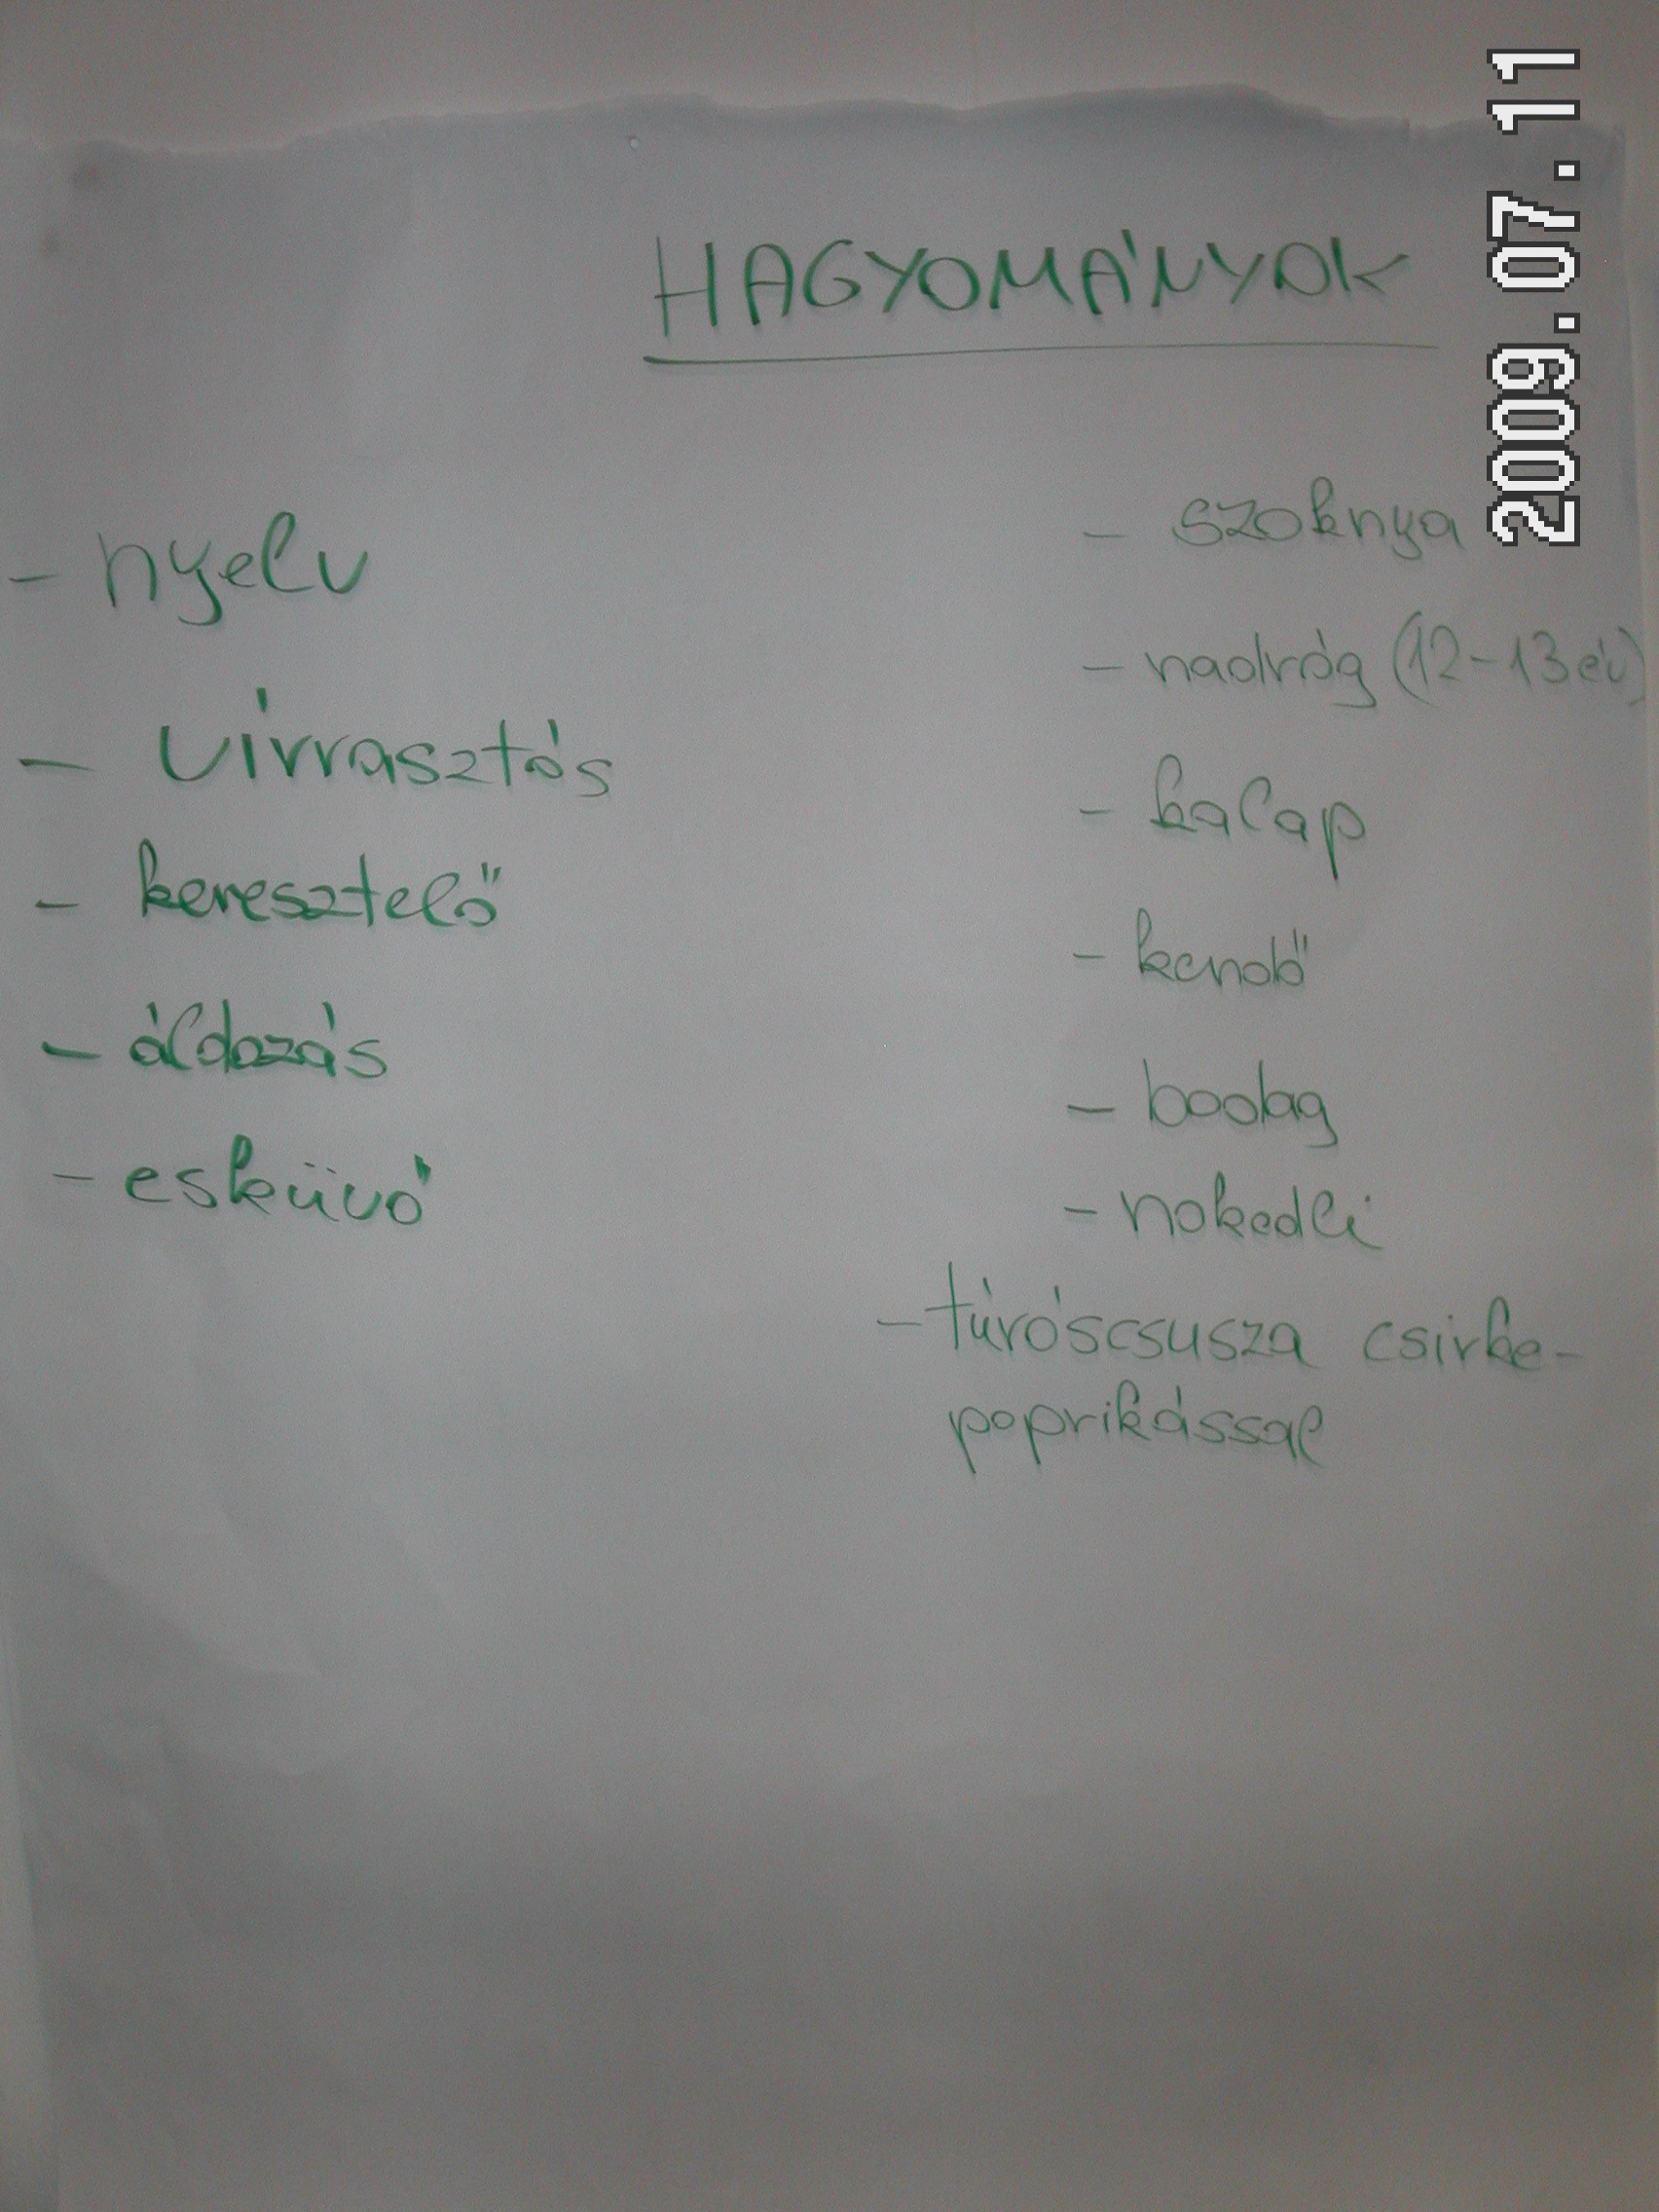 HAGYOMÁNYOK
- nyelv
- vírrasztás
- keresztelő
- áldozás
- esküvő
- szoknya
- nadrág (12-13 év)
- kalap
- kendő
- bodag
- nokedli
- túróscsusza csirke-
paprikással
2009.07.11